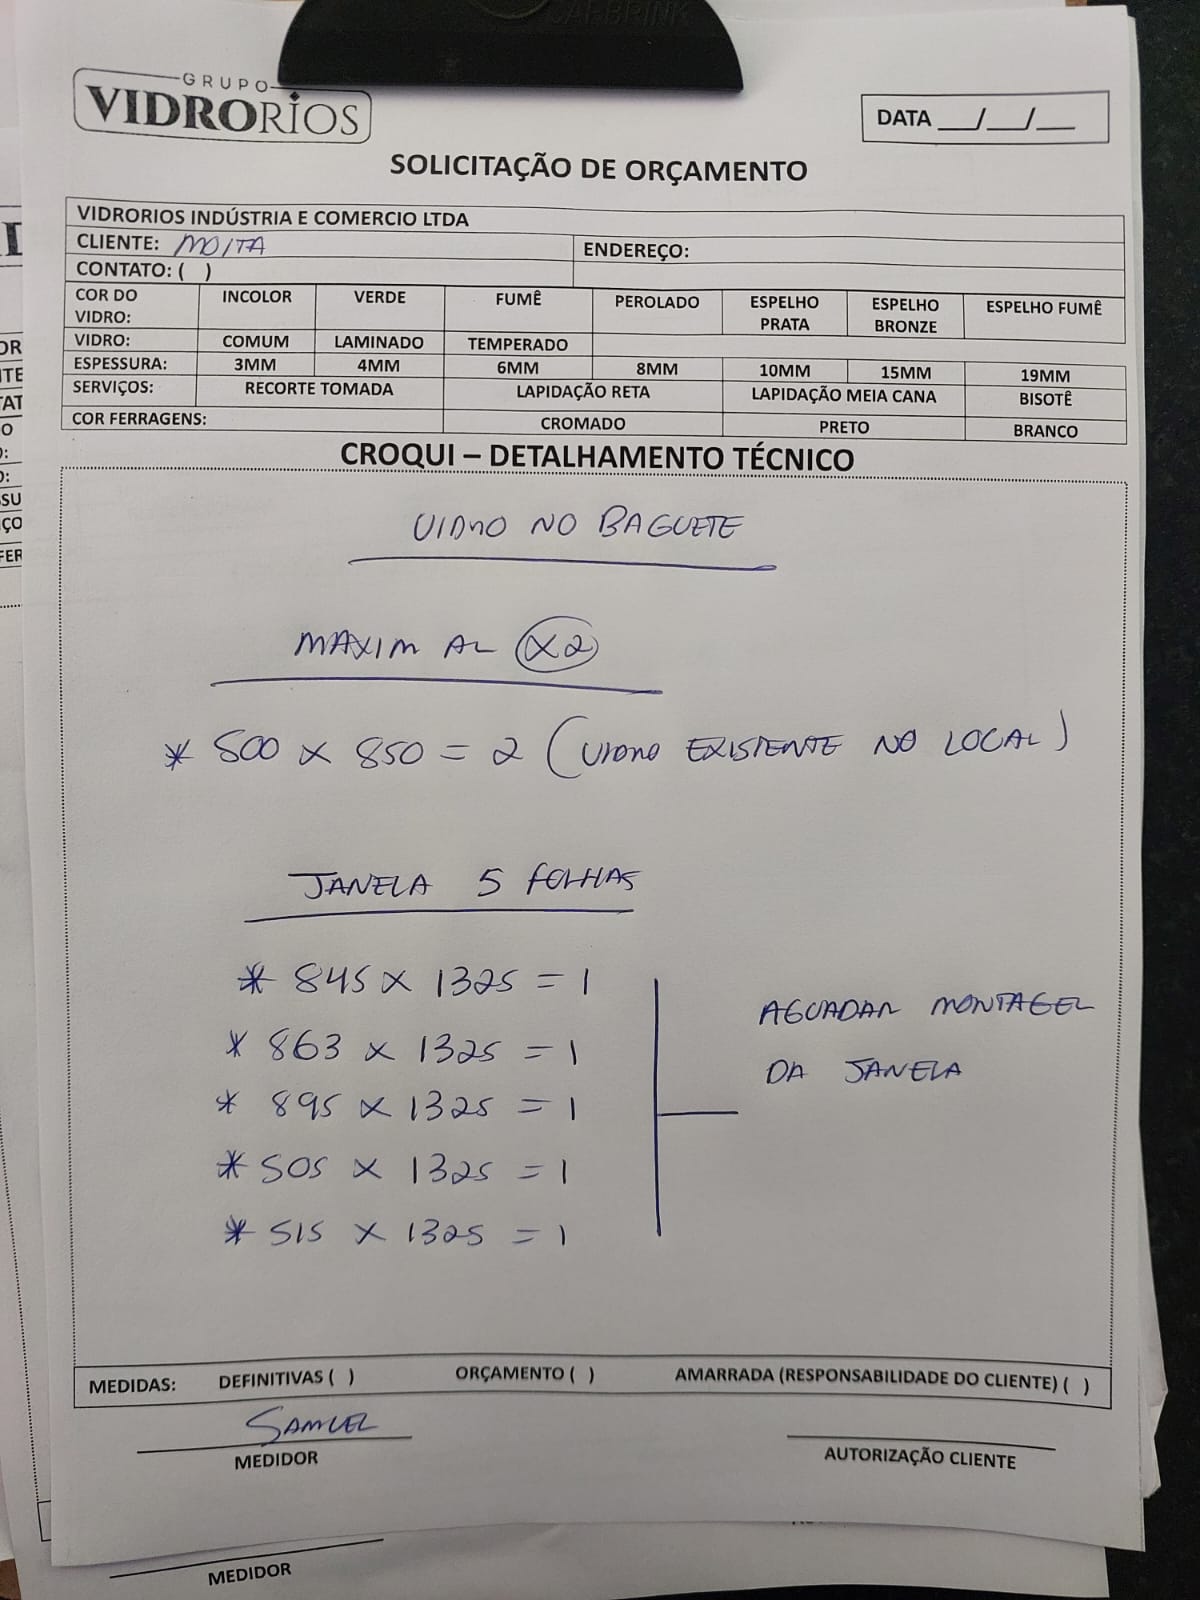 CAEBRINK
GRUPO
VIDRORIOS
DATA __/__/__
SOLICITAÇÃO DE ORÇAMENTO
VIDRORIOS INDÚSTRIA E COMERCIO LTDA
CLIENTE: MOITA
ENDEREÇO:
CONTATO: ( )
COR DO VIDRO: INCOLOR VERDE FUMÊ PEROLADO ESPELHO PRATA ESPELHO BRONZE ESPELHO FUMÊ
VIDRO: COMUM LAMINADO TEMPERADO
ESPESSURA: 3MM 4MM 6MM 8MM 10MM 15MM 19MM
SERVIÇOS: RECORTE TOMADA LAPIDAÇÃO RETA LAPIDAÇÃO MEIA CANA BISOTÊ
COR FERRAGENS: CROMADO PRETO BRANCO
CROQUI – DETALHAMENTO TÉCNICO
VIDRO NO BAGUETE
MAXIM AL X2
* 500 X 850 = 2 (VIDRO EXISTENTE NO LOCAL)
JANELA 5 FOLHAS
* 845 X 1325 = 1
* 863 X 1325 = 1
* 895 X 1325 = 1
* 505 X 1325 = 1
* 515 X 1325 = 1
AGUADAR MONTAGEL
DA JANELA
MEDIDAS: DEFINITIVAS ( ) ORÇAMENTO ( ) AMARRADA (RESPONSABILIDADE DO CLIENTE) ( )
SAMUEL
MEDIDOR
AUTORIZAÇÃO CLIENTE
MEDIDOR